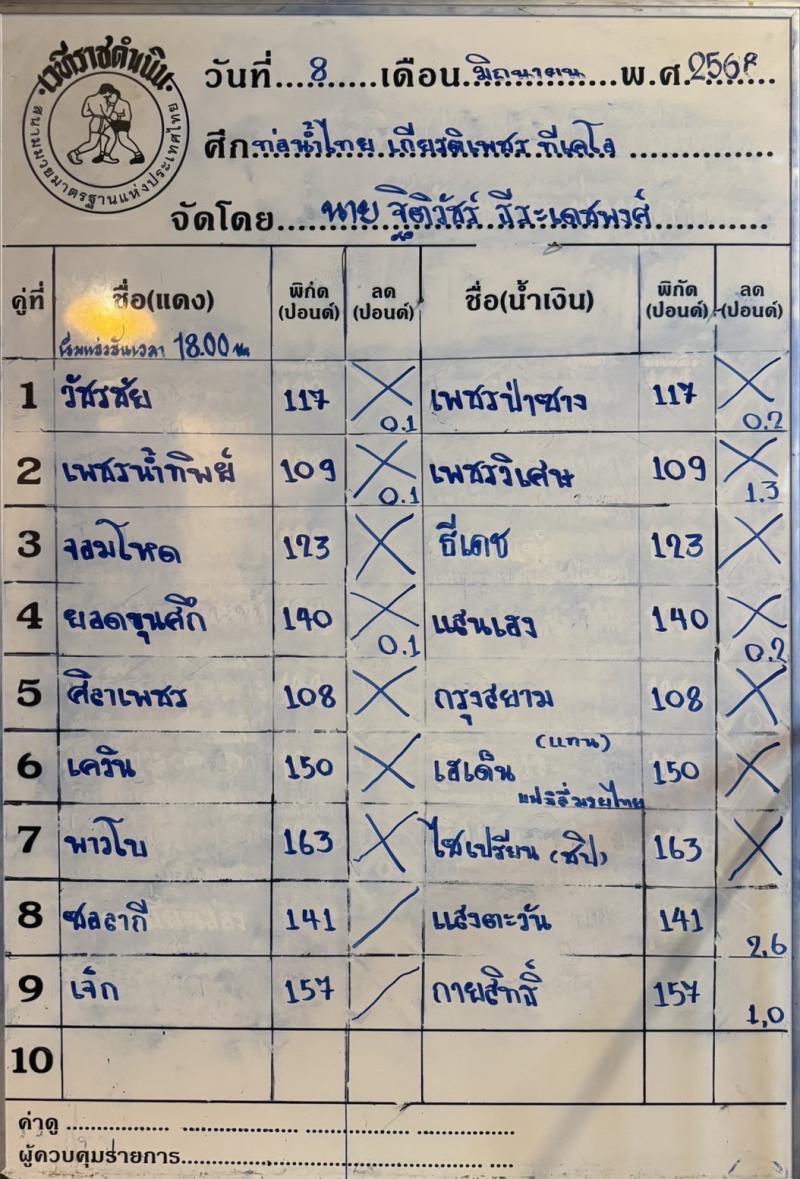 เวทีราชดำเนิน
สนามมวยมาตรฐานแห่งประเทศไทย
วันที่...8.....เดือน..มิถุนายน.....พ.ศ.2568
ศึก..ท่อน้ำไทย เกียรติเพชร ทีเคโอ
จัดโดย....นาย ฐิติวัชร์ ธีระเดชพงศ์
คู่ที่ ชื่อ(แดง) พิกัด (ปอนด์) ลด (ปอนด์) ชื่อ(น้ำเงิน) พิกัด (ปอนด์) ลด (ปอนด์)
เวลา 18.00 น.
1 วัชรชัย 117 0.1 เพชรป่าซาง 117 0.2
2 เพชรน้ำทิพย์ 109 0.1 เพชรวิเศษ 109 1.3
3 จอมโหด 123 ธีเดช 123
4 ยอดขุนศึก 140 0.1 แสนเฮง 140 0.2
5 ศิลาเพชร 108 กรุงสยาม 108
6 เควิน 150 เฮเด็น (แทน) 150
แฟมิลี่มวยไทย
7 พาวโบ 163 ไซเปรียน (ชิป) 163
8 ซอลากี 141 แสงตะวัน 141 2,6
9 เจ็ก 157 กายสิทธิ์ 157 1,0
10
ค่าดู
ผู้ควบคุมรายการ